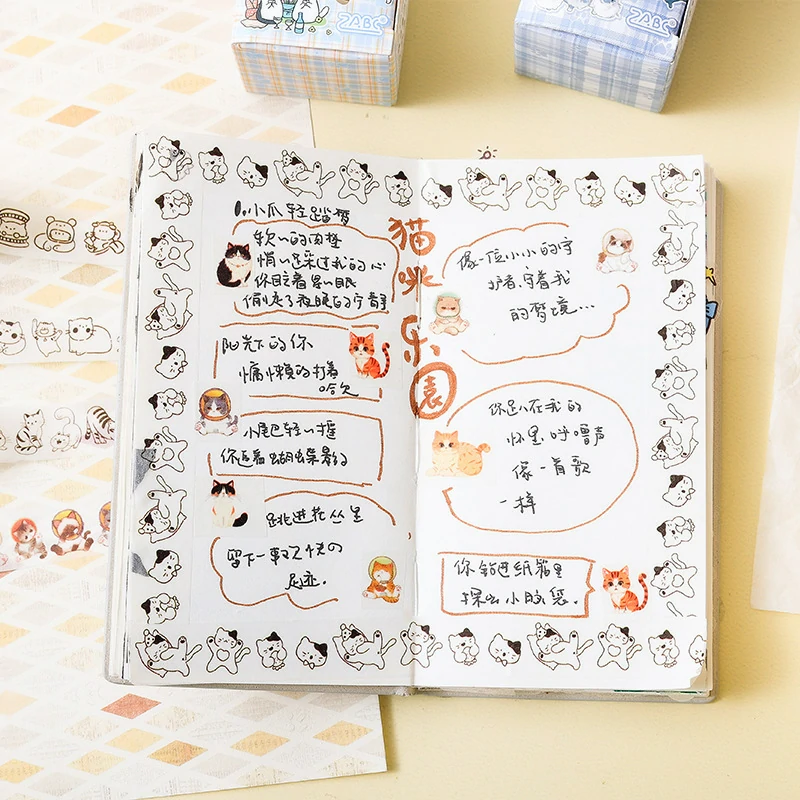 小爪轻踏梦
软软的肉垫
悄悄踩过我的心
你眨着星眼
偷走了夜晚的宁静
阳光下的你
慵懒的打着
哈欠
小尾巴轻轻摇
你追着蝴蝶影幻
跳进花丛里
留下一串欢快の
足迹.
猫咪乐园
像一位小小的守
护者.守着我
的梦境...
你趴在我的
怀里.呼噜声
像一首歌
一样
你钻进纸箱里
探出小脑袋.